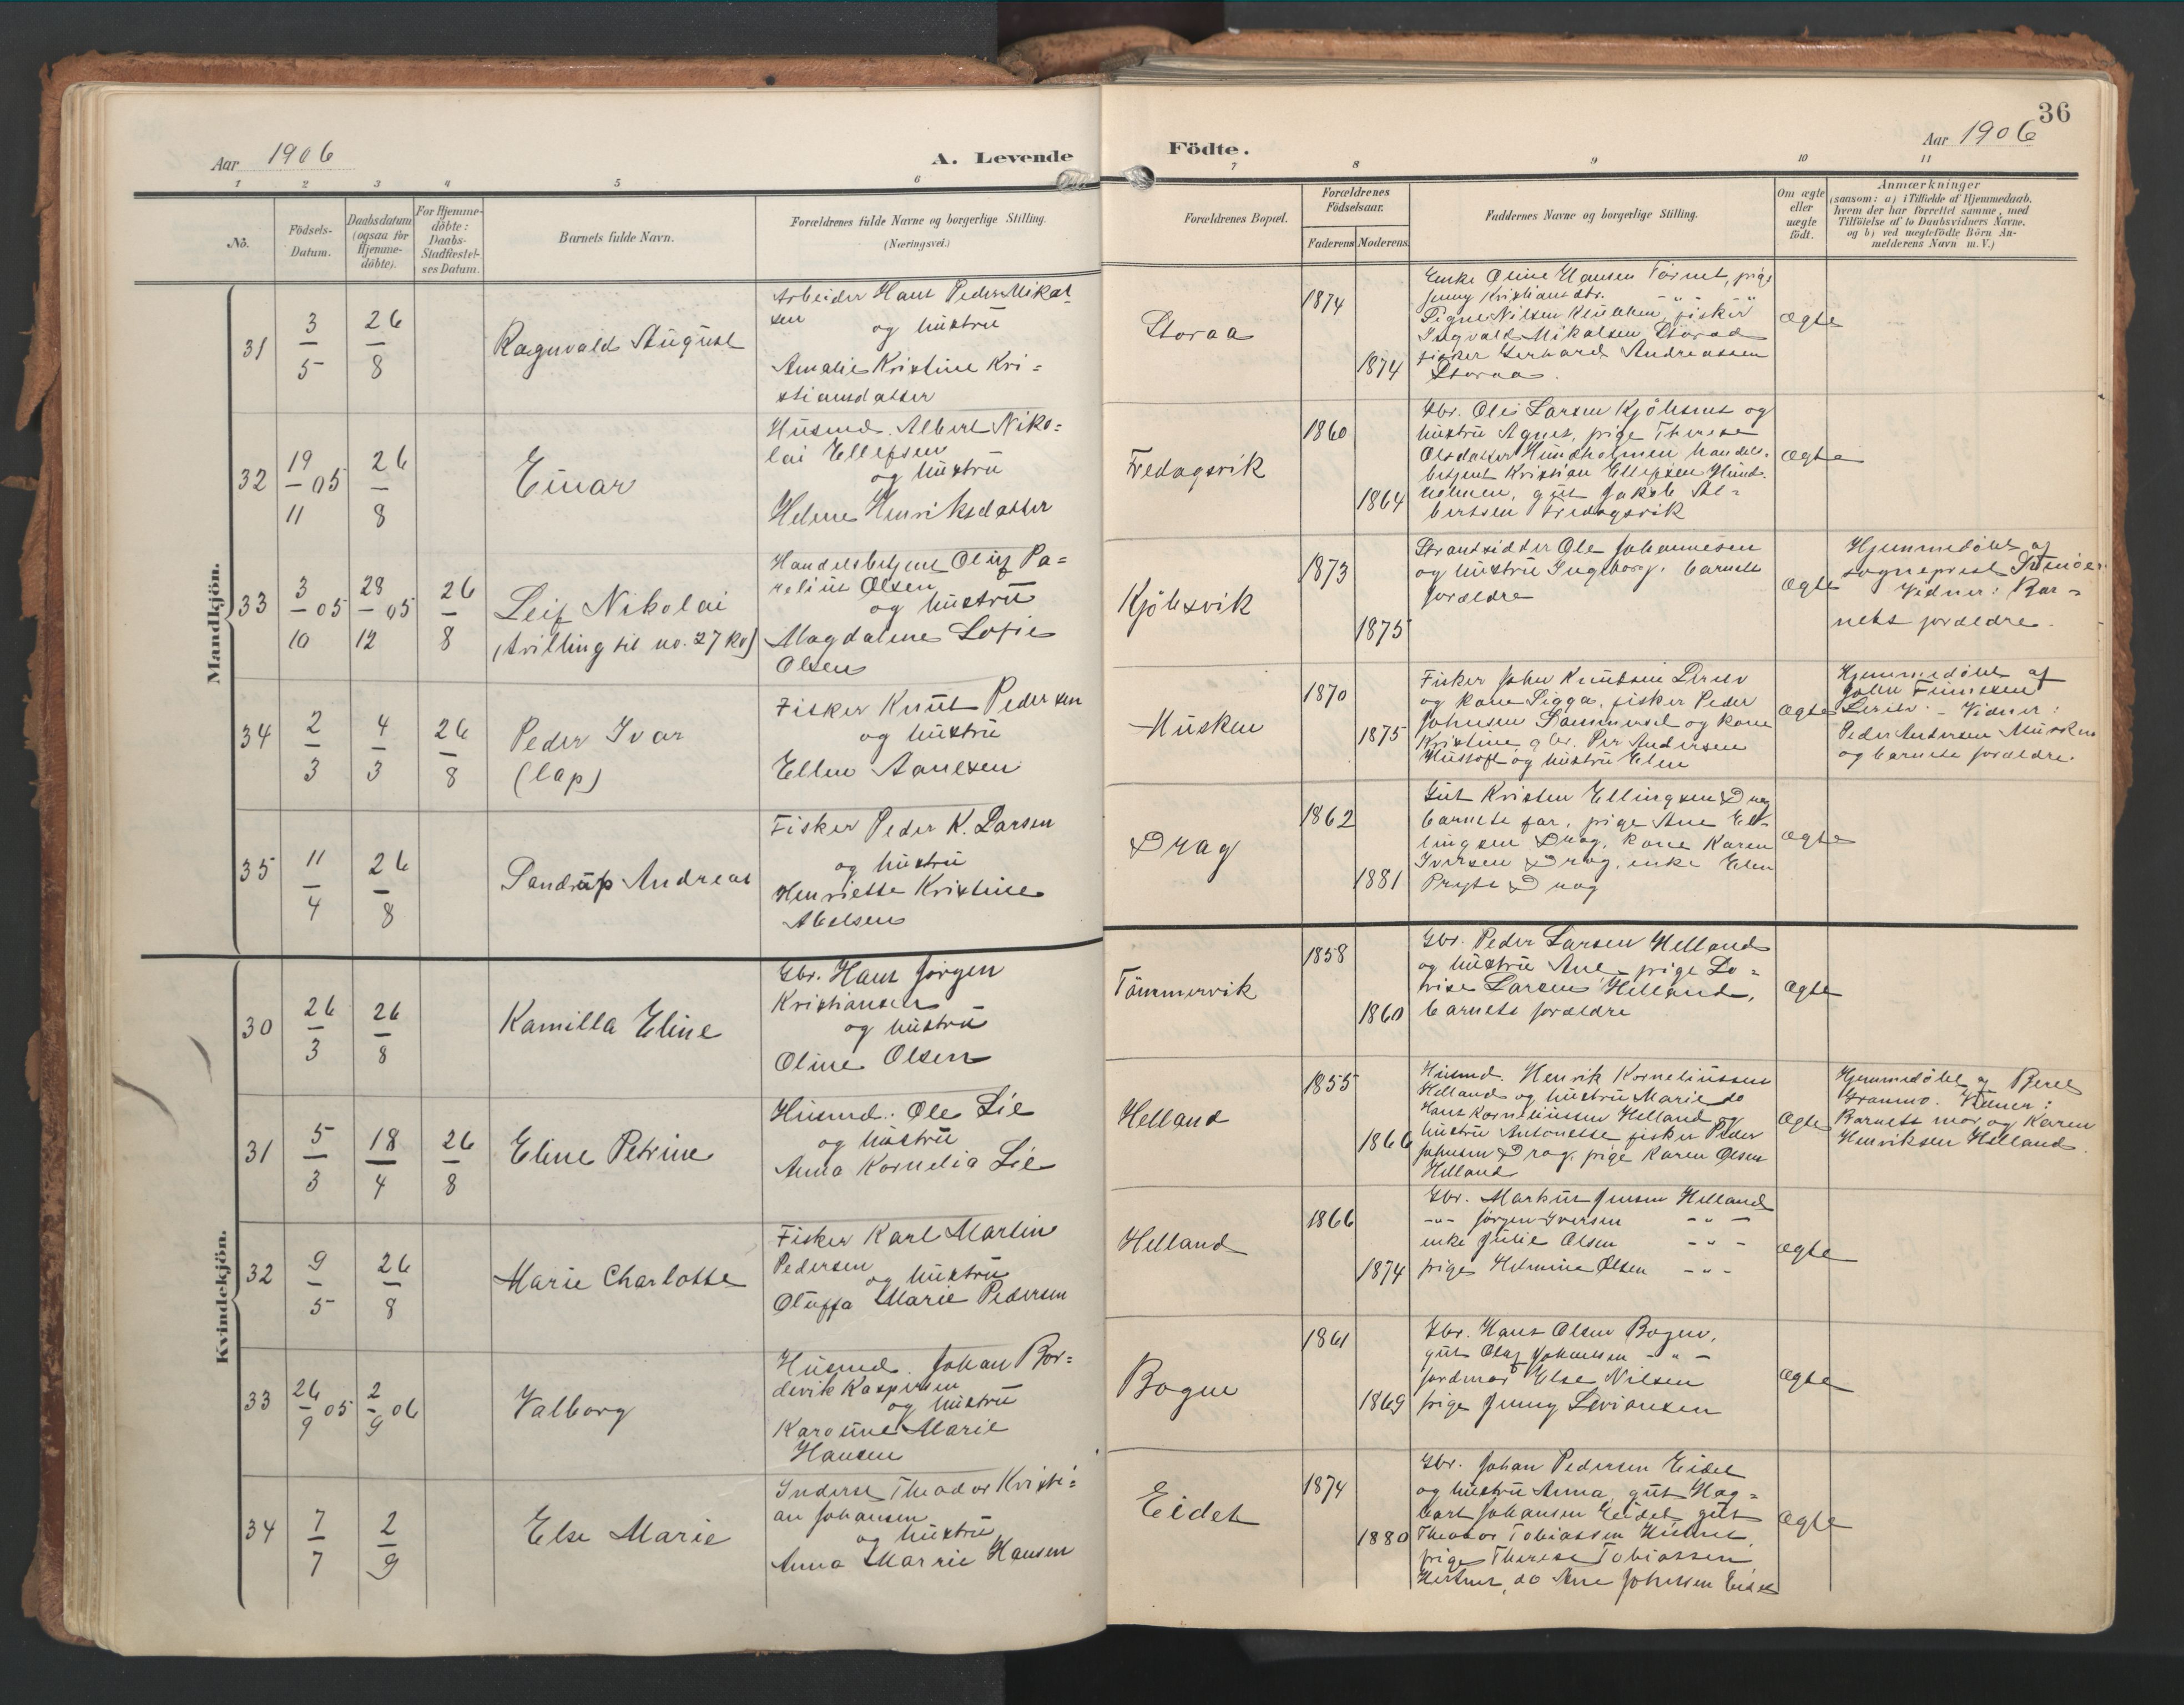 Aar 1906
A. Levende
1 2 3 4 5 6
Nò.
Födsels-
Datum.
Daabsdatum
(ogsaa for
Hjemme-
döbte).
For Hjemme-
döbte:
Daabs-
Stadfæstel-
ses Datum.
Barnets fulde Navn.
Forældrenes fulde Navne og borgerlige Stilling.
(Næringsvei.)
Mandkjön.
31
3/5
26/8
Ragnvald August
Arbeider Hans Peder Mikal-
sen og hustru
Amalie Kristine Kri=
stiansdatter
32
19/11 05
26/8
Einar
Husmd. Albert Niko=
lai Ellefsen
og hustru
Helene Henriksdatter
33
3/10 05
28/12 05
26/8
Leif Nikolai
(tvilling til no. 27 kv)
Handelsbetjent Oluf Pa=
relius Olsen
og hustru
Magdalene Sofie
Olsen
34
2/3
4/3
26/8
Peder Ivar
(lap)
Fisker Knut Pedersen
og hustru
Ellen Aanesen
35
11/4
26/8
Sandrup Andreas
Fisker Peder K. Larsen
og hustru
Henriette Kristine
Abelsen
Kvindekjön.
30
26/3
26/8
Kamilla Eline
Gbr. Hans Jörgen
Kristiansen
og hustru
Oline Olsen
31
5/3
18/4
26/8
Eline Petrine
Husmd. Ole Lie
og hustru
Anna Kornelia Lie
32
9/5
26/8
Marie Charlotte
Fisker Karl Martin
Pedersen
og hustru
Oluffa Marie Pedersen
33
26/9 05
2/9 06
Valborg
Husmd. Johan Bor=
devik Kaspersen
og hustru
Karoline Marie
Hansen
34
7/7
2/9
Else Marie
Inderst Theodor Kristi=
an Johansen
og hustru
Anna Marrie Hansen
36
Födte.
Aar 1906
7 8 9 10 11
Forældrenes Bopæl.
Forældrenes
Födselsaar.
Faderens Moderens
Faddernes Navne og borgerlige Stilling.
Om ægte
eller
uægte
födt.
Anmærkninger
(saasom: a) i Tilfælde af Hjemmedaab,
hvem der har forrettet samme, med
Tilföielse af to Daabsvidners Navne,
og b) ved uegtefödte Börn An-
melderens Navn m. V.)
Storaa
1874
1874
Enke Oline Hansen Törnet, pige
Jenny Kristiansdtr. - " -
Signe Nilsen, fisker
Ingvald Mikalsen Storaa
fisker Gerhard Andreassen
Storaa.
ægte
Fredagsvik
1860
1864
Gbr. Ole Larsen Kjöbsnes og
hustru Agnes, pige Therese
Olsdatter Hundholmen handels-
betjent Kristian Ellefsen Hund-
holmen, gut Jakob Al=
bertsen Fredagsvik
ægte
Kjöbsvik
1873
1875
Strandsidder Ole Johannesen
og hustru Ingeborg. barnets
forældre
ægte
Hjemmedöbt af
sogneprest
Vidner: Bar=
nets forældre.
Musken
1870
1875
Fisker John Knutsen
og kone Sigga, fisker Peder
Johnsen og kone
Kristine, gbr. Per Andersen
og hustru Elen
ægte
Hjemmedöbt af
John Finnesen
Vidner:
Peder Andersen Musken
og barnets forældre.
Drag
1862
1881
Gut Kristen Ellingsen Drag
barnets far, pige Ane El-
lingsen Drag, kone Karen
Iversen Drag, enke Elen
Drag
ægte
Tömmervik
1858
1860
Gbr. Peder Larsen Helland
og hustru Ane, pige Lo=
vise Larsen Helland,
barnets forældre
ægte
Helland
1855
1866
Husmd. Henrik Korneliussen
Helland og hustru Marie do
Hans Korneliussen Helland og
hustru Antonette, fisker Peder
Johnsen Drag, pige Karen Olsen
Helland
ægte
Hjemmedöbt af
Vidner:
Barnets mor og Karen
Henriksen Helland.
Helland
1866
1874
Gbr. Markus Jensen Helland
-"- Jörgen Iversen - " -
enke Julie Olsen - " -
pige Helmine Olsen - " -
ægte
Bogen
1861
1869
Gbr. Hans Olsen Bogen,
gut Olaf Johnsen - " -
jordmor Else Nilsen
pige Jenny Sivertsen
ægte
Eidet
1874
1880
Gbr. Johan Pedersen Eidet
og hustru Anna, gut Hag=
bart Johansen Eidet, gut
Theodor Tobiassen
pige Therese Tobiassen
do Ane Johnsen Eidet
ægte